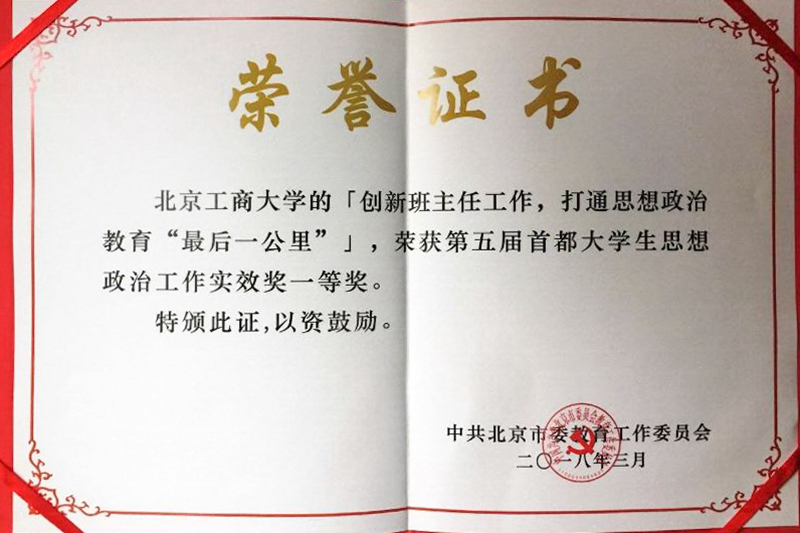 荣誉证书
北京工商大学的「创新班主任工作，打通思想政治
教育“最后一公里”」，荣获第五届首都大学生思想
政治工作实效奖一等奖。
特颁此证，以资鼓励。
中共北京市委教育工作委员会
二〇一八年三月